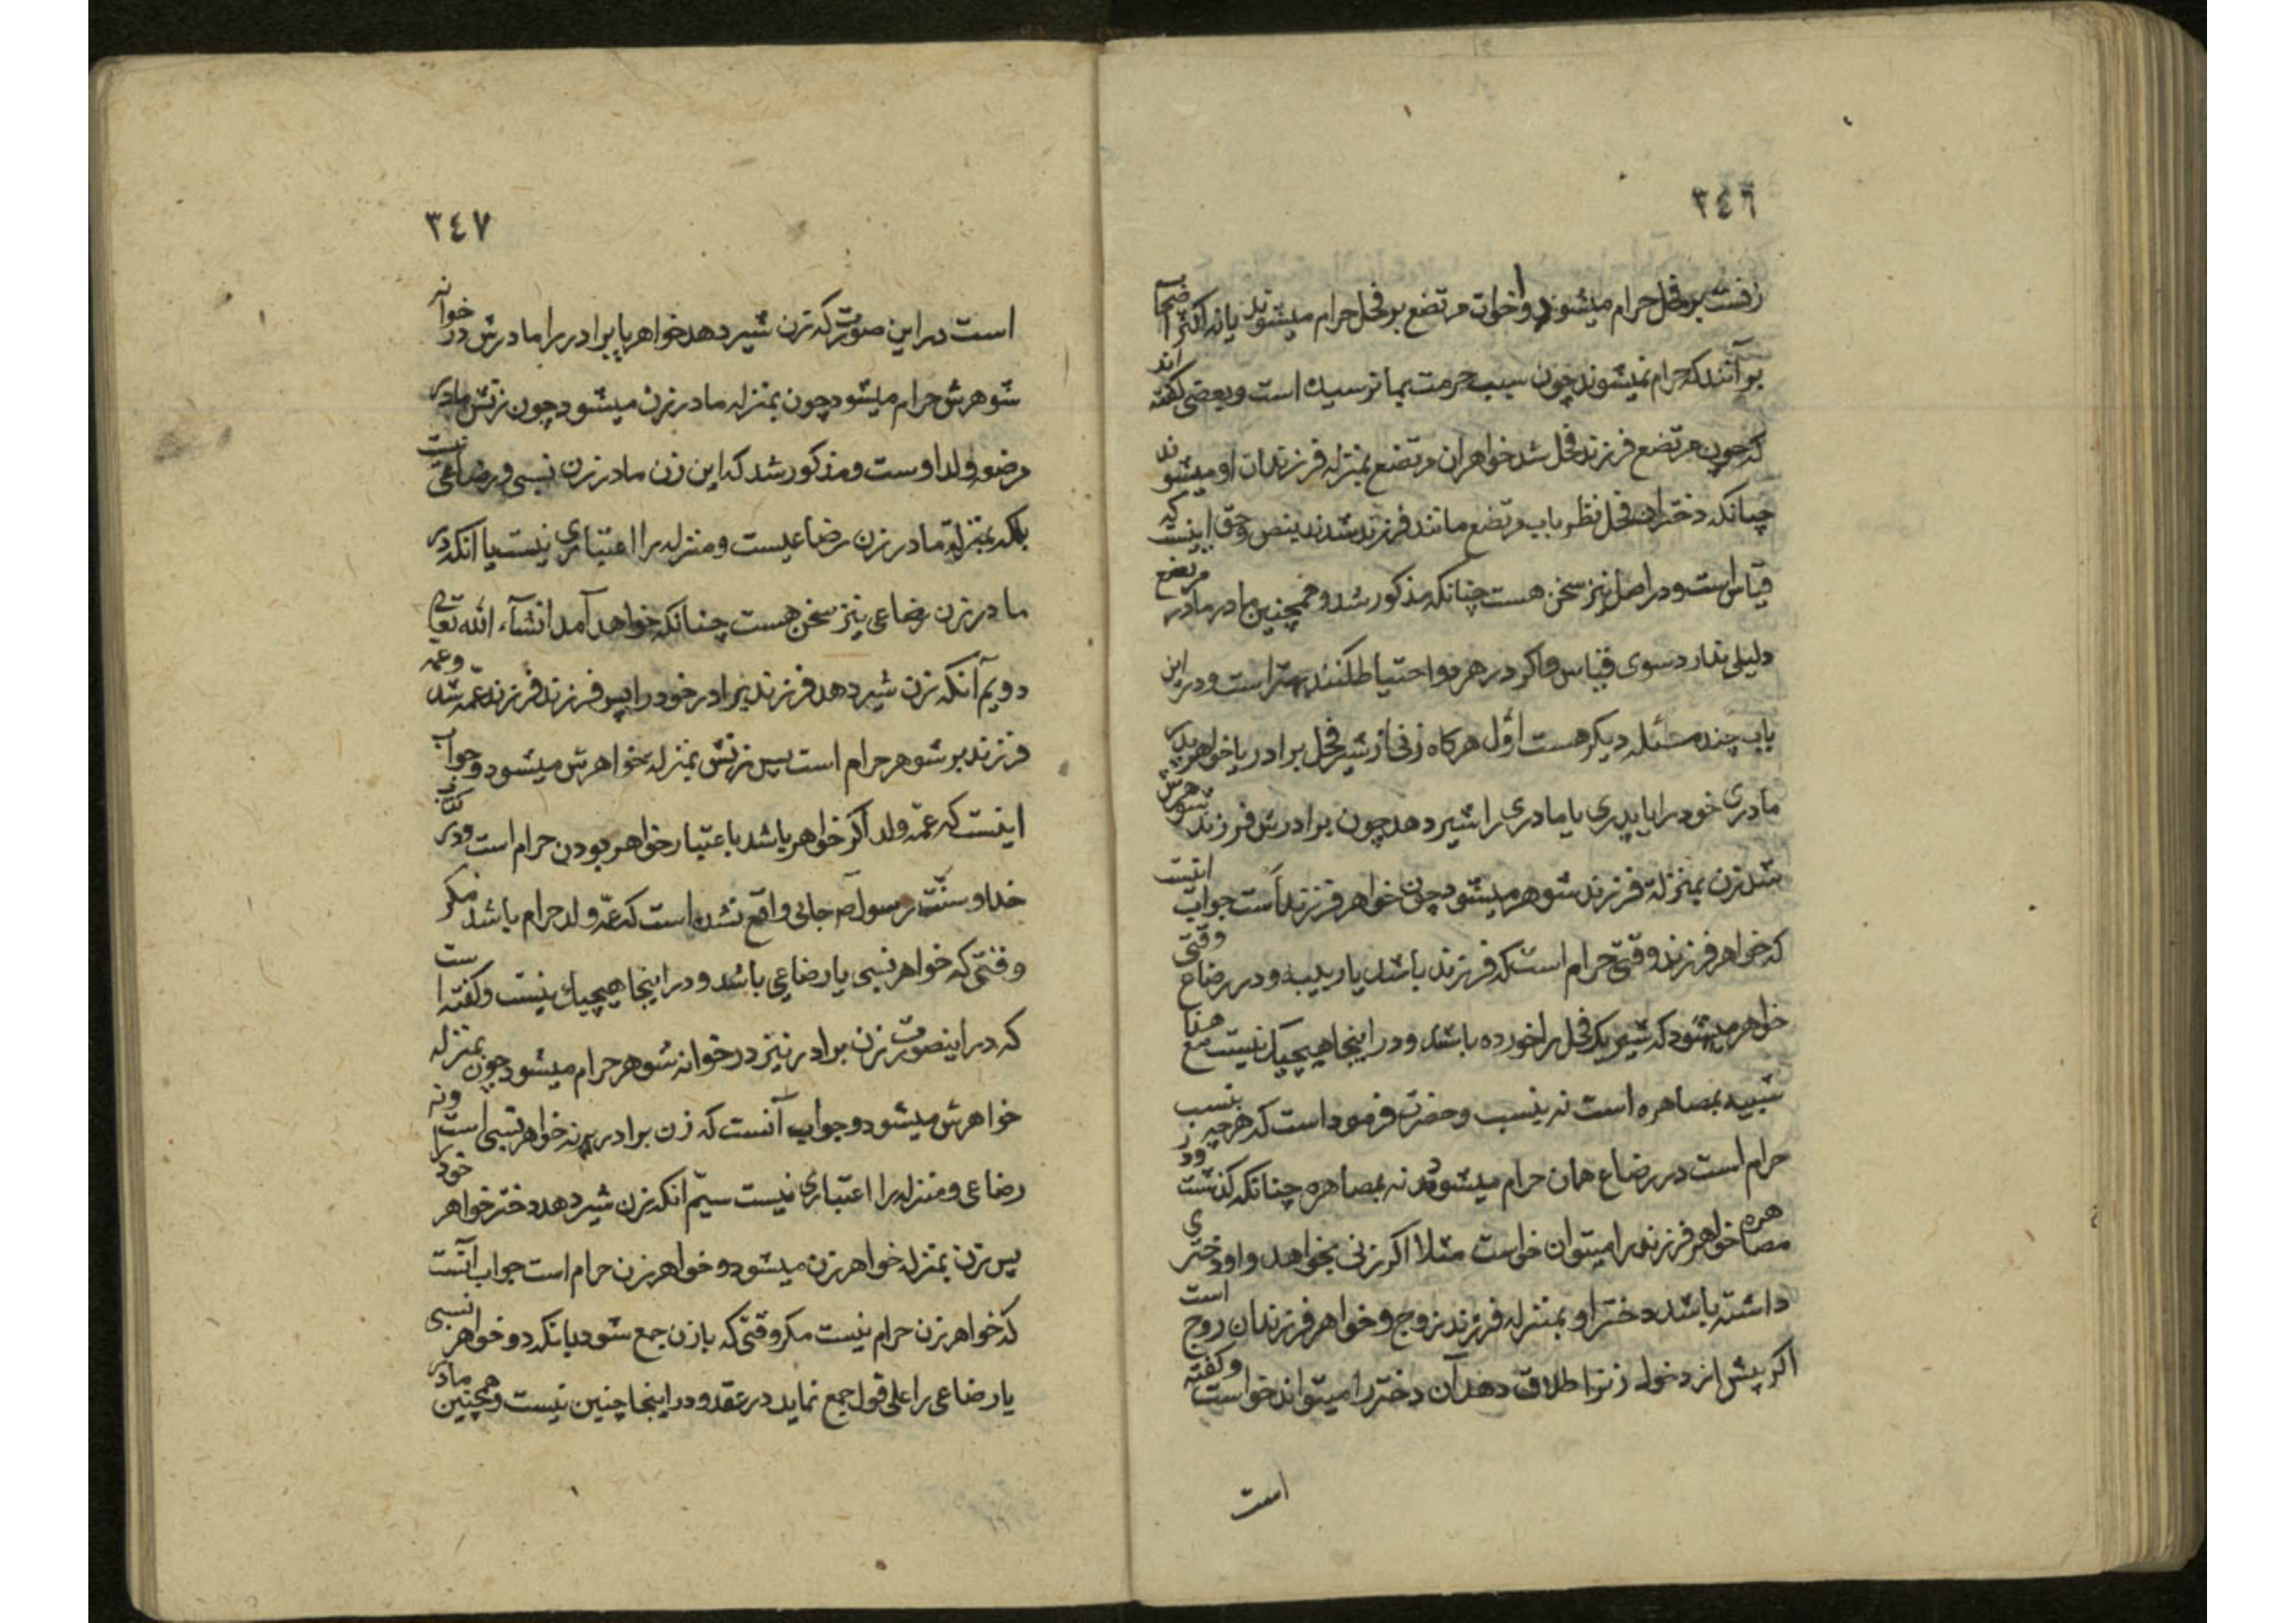 ٣٤٦
زفست بر فحل حرام میشوند و اخوات مرتضع بر فحل حرام میشوند یا نه اکثر اصحاب
بر آنند که حرام نمیشوند چون سبب حرمت بما نرسیده است و بعضی گفته اند
که چون مرتضع فرزند فحل شد خواهران مرتضع بمنزله فرزندان او میشوند
چنانکه دختران فحل نظر باب مرتضع مانند فرزند شدند بنص و حق اینست که
قیاس است و در اصل نیز سخن هست چنانکه مذکور شد و همچنین مادر مادر مرتضع
دلیلی ندارد سوی قیاس و اگر در هر دو احتیاط کنند بهتر است و در این
باب چند مسئله دیگر هست اول هرگاه زنی از شیر فحل برادر یا خواهر پدر
مادری خود را یا پدری یا مادری را شیر دهد چون برادرش فرزند شوهرش
شد زن بمنزلة فرزند شوهر میشود چون خواهر فرزند است جواب اینست
که خواهر فرزند وقتی حرام است که فرزند باشد یا ربیبه و در رضاع وقتی
خواهر میشود که شیر یک فحل را خورده باشد و در اینجا هیچیک نیست مع هذا
شبیه بمصاهره است نه بنسب و حضرت فرموده است که هر چه بنسب
حرام است در رضاع همان حرام میشود نه بمصاهره چنانکه گذشت و در
مصاهره خواهر فرزند را میتوان خواست مثلا اگر زنی بخواهد و او دختری
داشته باشد دختر او بمنزله فرزند زوج و خواهر فرزندان زوج است
اگر پیش از دخول زنرا طلاق دهد آن دختر را میتواند خواست و گفته
است
٣٤٧
است در این صورت که زن شیر دهد خواهر یا برادر را مادرش در خوانه
شوهرش حرام میشود چون بمنزله مادر زن میشود چون زنش مادر
مرضعه ولد اوست و مذکور شد که این زن مادر زن نسبی و رضاعی نیست
بلکه بمنزلة مادر زن رضاعیست و منزله را اعتباری نیست با آنکه در
مادر زن رضاعی نیز سخن هست چنانکه خواهد آمد انشآء الله تعالی
دویم آنکه زن شیر دهد فرزند برادر خود را پس فرزند فرزند عمه شد و عمه
فرزند بر شوهر حرام است پس زنش بمنزله خواهرش میشود و جواب
اینست که عمّه ولد اگر خواهر باشد باعتبار خواهر بودن حرام است و در کتاب
خدا و سنّت رسول ص جائی واقع نشده است که عمّه ولد حرام باشد مگر
وقتی که خواهر نسبی یا رضاعی باشد و در اینجا هیچیک نیست و گفته است
که در اینصورت زن برادر نیز در خوانه شوهر حرام میشود چون بمنزله
خواهرش میشود و جواب آنست که زن برادر نه خواهر نسبی است و نه
رضاعی و منزله را اعتباری نیست سیّم آنکه زن شیر دهد دختر خواهر خود را
پس زن بمنزله خواهر زن میشود و خواهر زن حرام است جواب آنست
که خواهر زن حرام نیست مگر وقتی که با زن جمع شود بانکه دو خواهر نسبی
یا رضاعی را علی قول جمع نماید در عقد و در اینجا چنین نیست و همچنین مادر